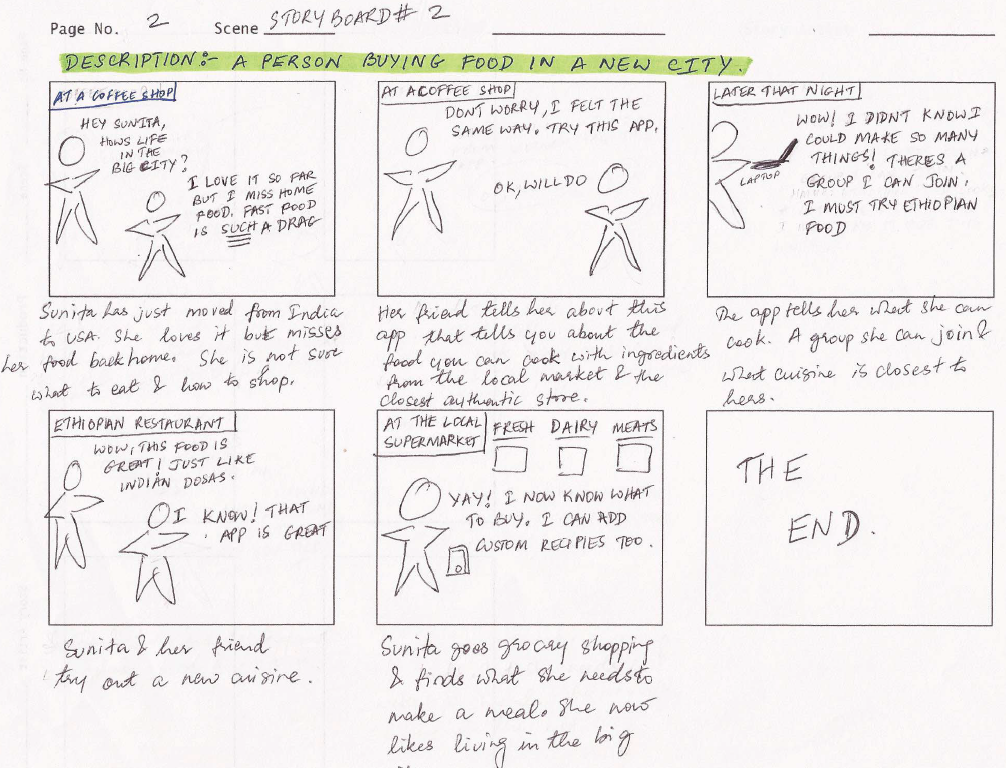 Page No. 2 Scene STORYBOARD# 2
DESCRIPTION:- A PERSON BUYING FOOD IN A NEW CITY.
AT A COFFEE SHOP
HEY SUNITA,
HOWS LIFE
IN THE
BIG CITY?
I LOVE IT SO FAR
BUT I MISS HOME
FOOD. FAST FOOD
IS SUCH A DRAG
Sunita has just moved from India
to USA. She loves it but misses
her food back home. She is not sure
what to eat & how to shop.
AT A COFFEE SHOP
DONT WORRY, I FELT THE
SAME WAY. TRY THIS APP.
OK, WILL DO
Her friend tells her about this
app that tells you about the
food you can cook with ingredients
from the local market & the
closest authentic store.
LATER THAT NIGHT
WOW! I DIDNT KNOW I
COULD MAKE SO MANY
THINGS! THERES A
GROUP I CAN JOIN.
I MUST TRY ETHIOPIAN
FOOD
LAPTOP
The app tells her what she can
cook. A group she can join &
what cuisine is closest to
hers.
ETHIOPIAN RESTAURANT
WOW, THIS FOOD IS
GREAT! JUST LIKE
INDIAN DOSAS.
I KNOW! THAT
APP IS GREAT
Sunita & her friend
try out a new cuisine.
AT THE LOCAL
SUPERMARKET
FRESH DAIRY MEATS
YAY! I NOW KNOW WHAT
TO BUY. I CAN ADD
CUSTOM RECIPIES TOO.
Sunita goes grocery shopping
& finds what she needs to
make a meal. She now
likes living in the big
THE
END.